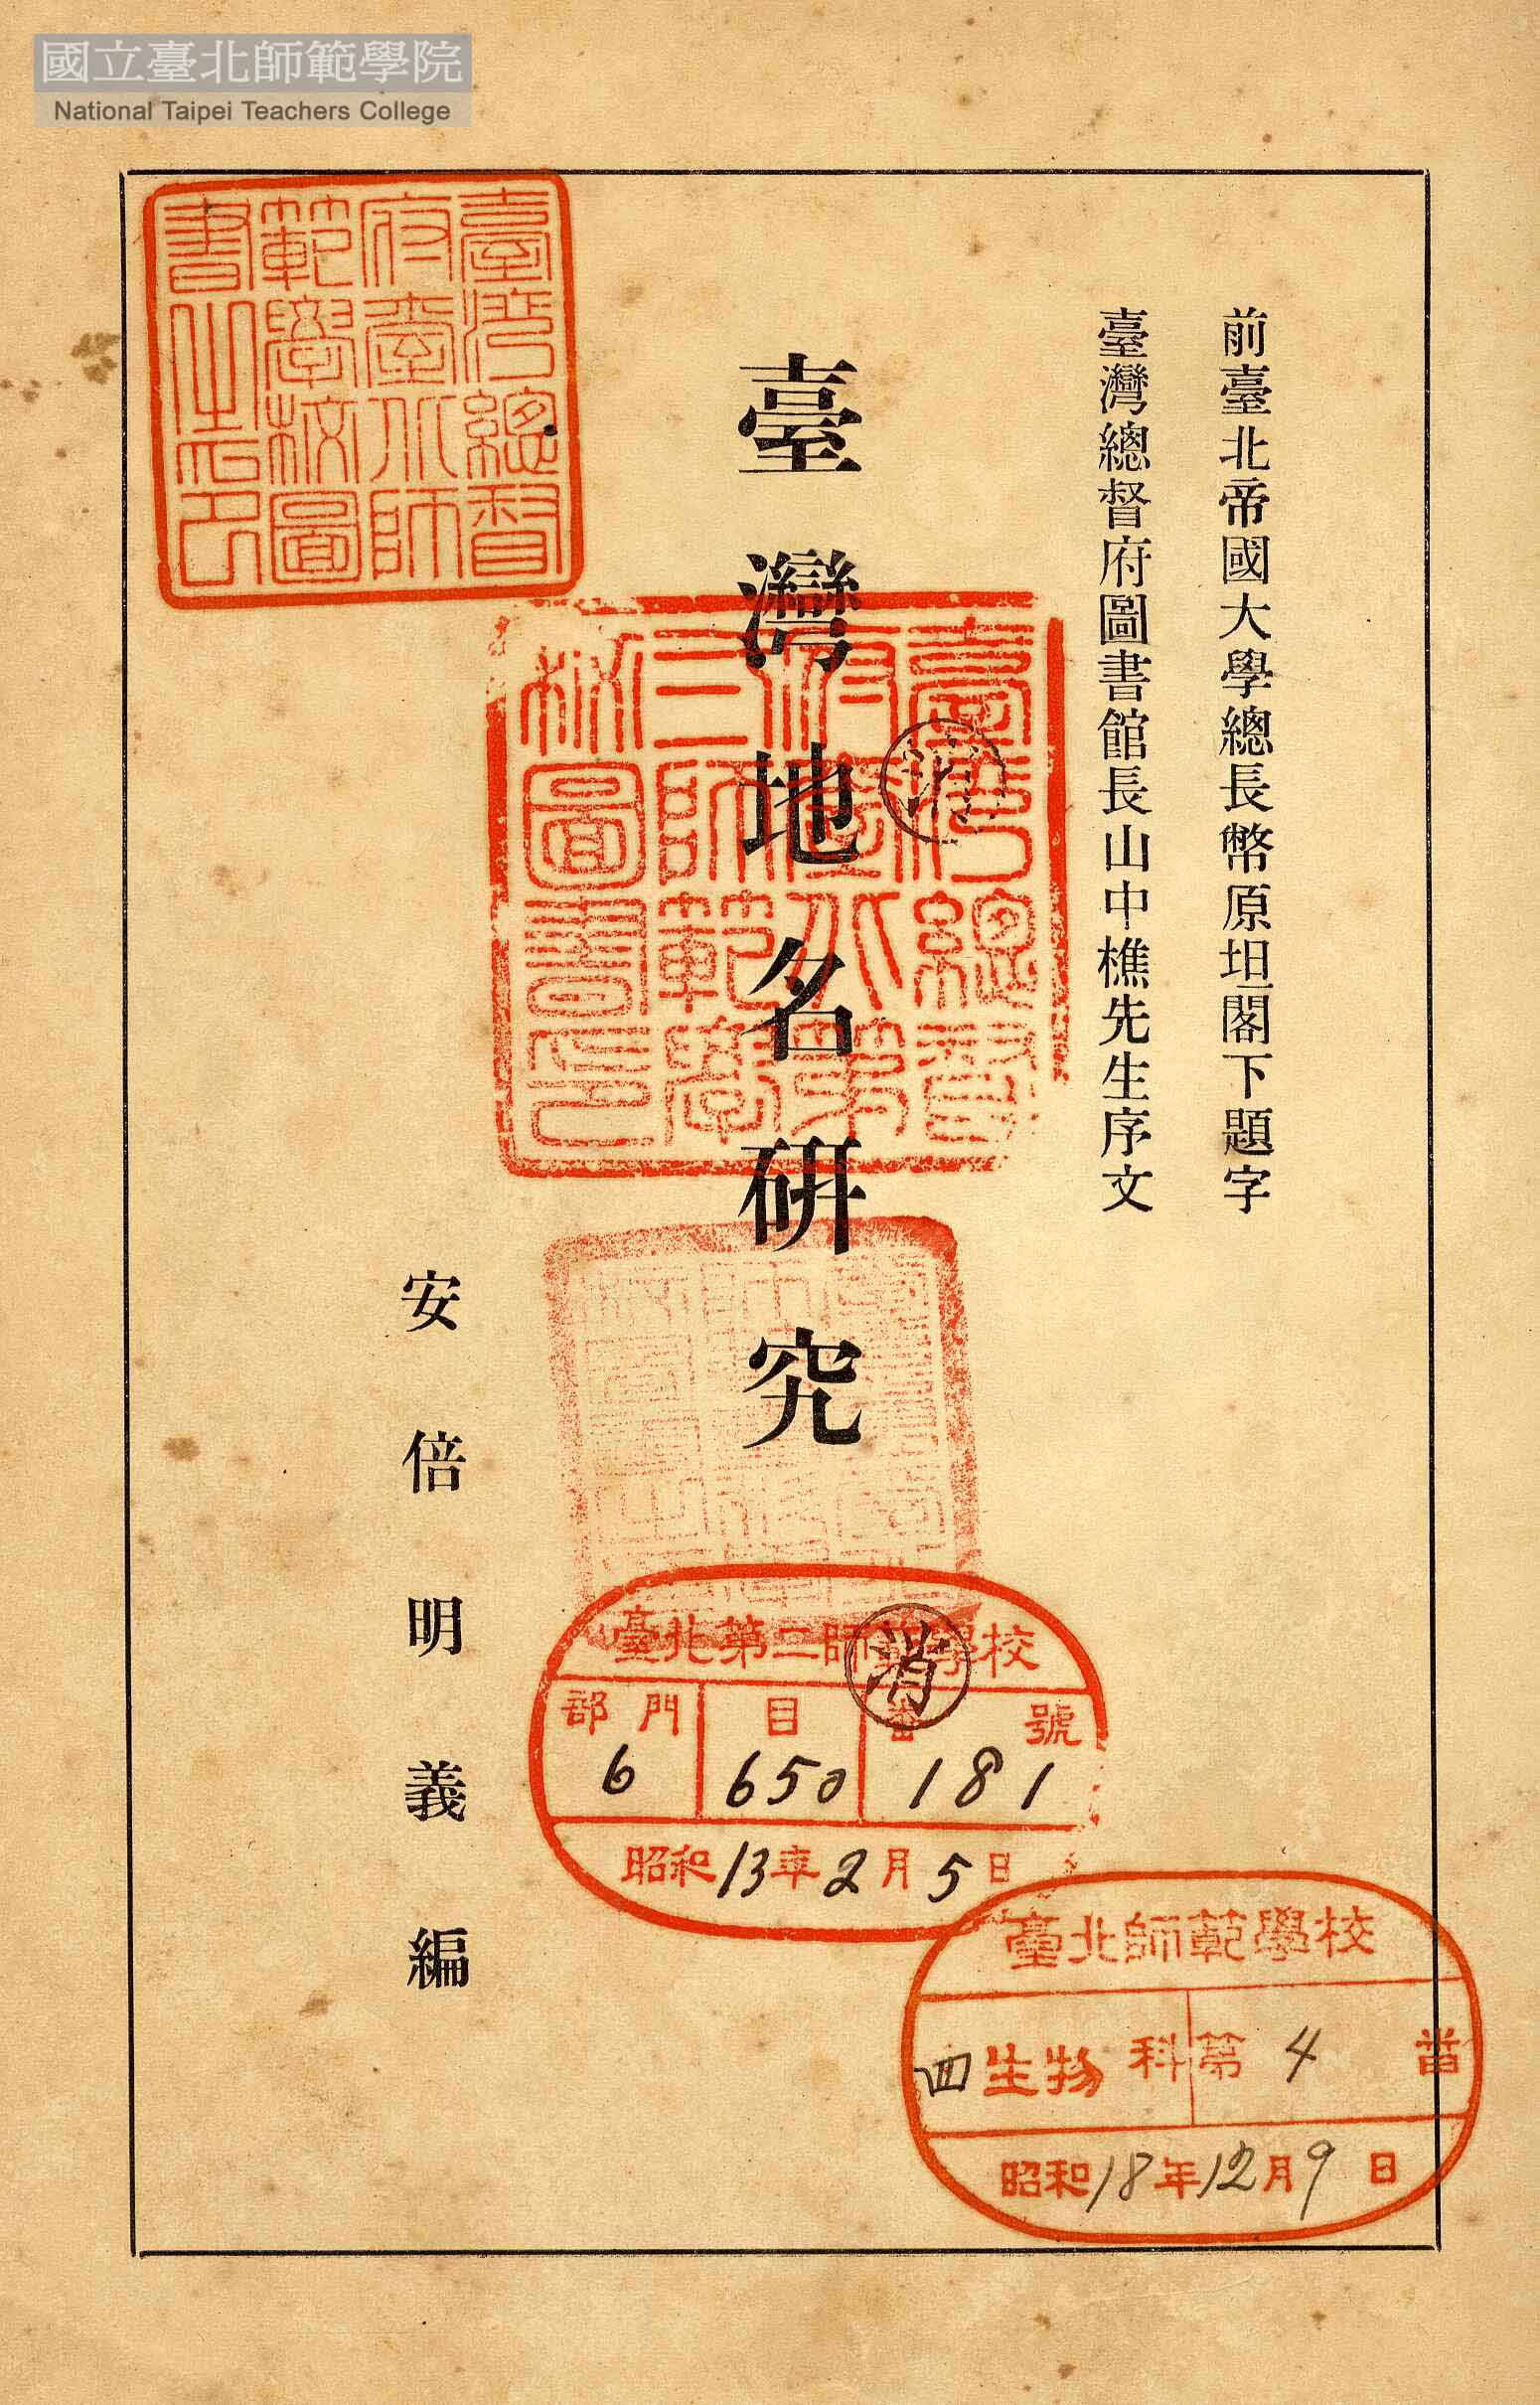 國立臺北師範學院
National Taipei Teachers College
前臺北帝國大學總長幣原坦閣下題字
臺灣總督府圖書館長山中樵先生序文
臺灣地名研究
安倍明義編
臺灣總督
府臺北師
範學校圖
書之印
臺灣總督
府臺北第
二師範學
校圖書印
消
臺北第二師範學校
部門 目 番號
6 650 181
昭和13年2月5日
消
臺北師範學校
四生物科第4番
昭和18年12月9日